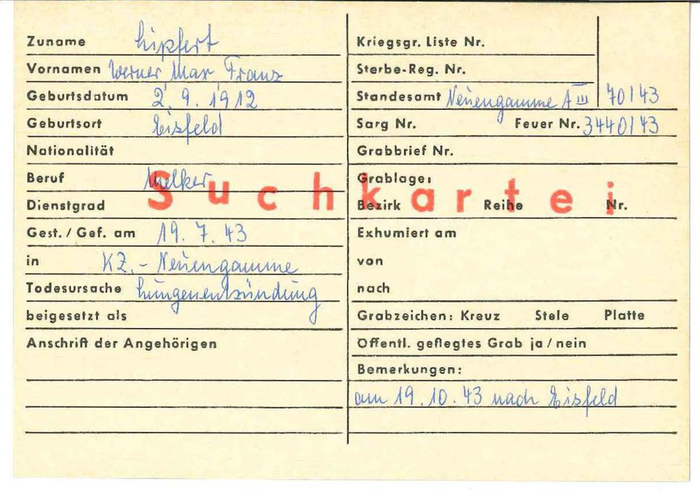 Zuname Lipfert
Vornamen Werner, Max, Franz
Geburtsdatum 2. 9. 1912
Geburtsort Eisfeld
Nationalität
Beruf Melker
Dienstgrad
Gest. / Gef. am 19. 7. 43
in KZ.-Neuengamme
Todesursache Lungenentzündung
beigesetzt als
Anschrift der Angehörigen
Suchkartei
Kriegsgr. Liste Nr.
Sterbe-Reg. Nr.
Standesamt Neuengamme A III 70/43
Sarg Nr. Feuer Nr. 3440/43
Grabbrief Nr.
Grablage:
Bezirk Reihe Nr.
Exhumiert am
von
nach
Grabzeichen: Kreuz Stele Platte
Öffentl. geflegtes Grab ja/nein
Bemerkungen:
am 19. 10. 43 nach Eisfeld